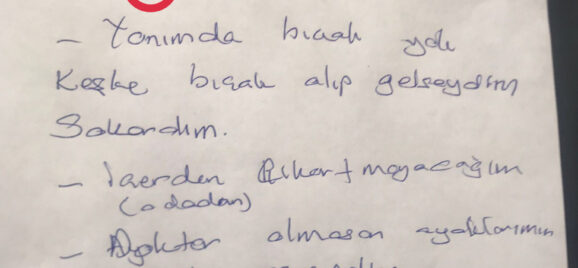 - Yanımda bıçak yok
Keşke bıçak alıp gelseydim
Sokardım.
- İçerden çıkartmayacağım
(odadan)
- Doktor olmasan ayaklarımın